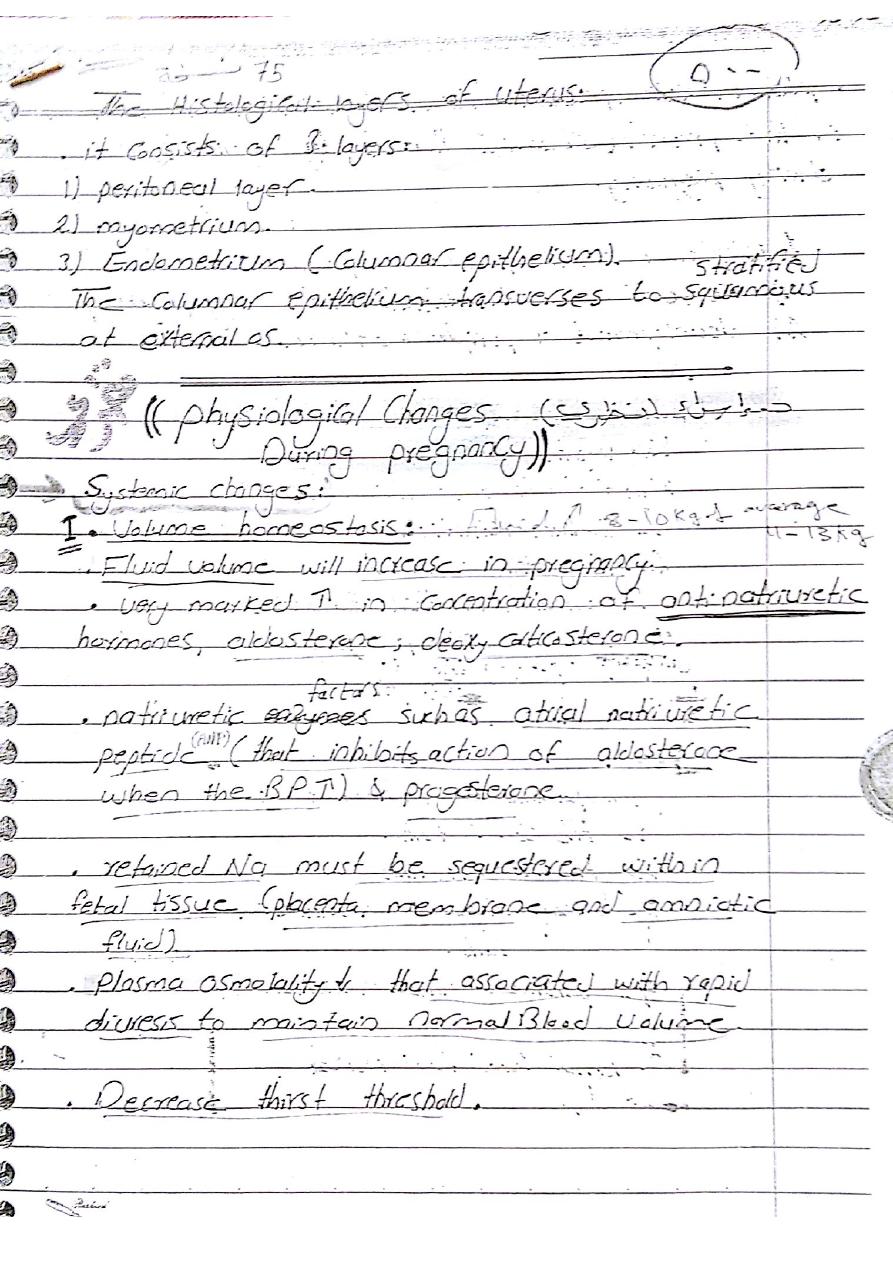 75
The Histological layers of uterus:
. it consists of 3 layers:
1) peritoneal layer.
2) myometrium.
3) Endometrium (Columnar epithelium).
The columnar epithelium transverses to stratified squamous
at external os.
(( physiological Changes
During pregnancy))
Systemic changes:
I. Volume homeostasis: Fluid ↑ 8-10kg of average 11-13kg
. Fluid volume will increase in pregnancy.
. very marked ↑ in concentration of antinatriuretic
hormones, aldosterone; deoxy corticosterone.
factors
. natriuretic enzymes such as atrial natriuretic
peptide (ANP) (that inhibits action of aldosterone
when the BP ↑) & progesterone.
. retained Na must be sequestered within
fetal tissue (placenta, membrane and amniotic
fluid)
. plasma osmolality ↓ that associated with rapid
diuresis to maintain normal Blood volume.
. Decrease thirst threshold.